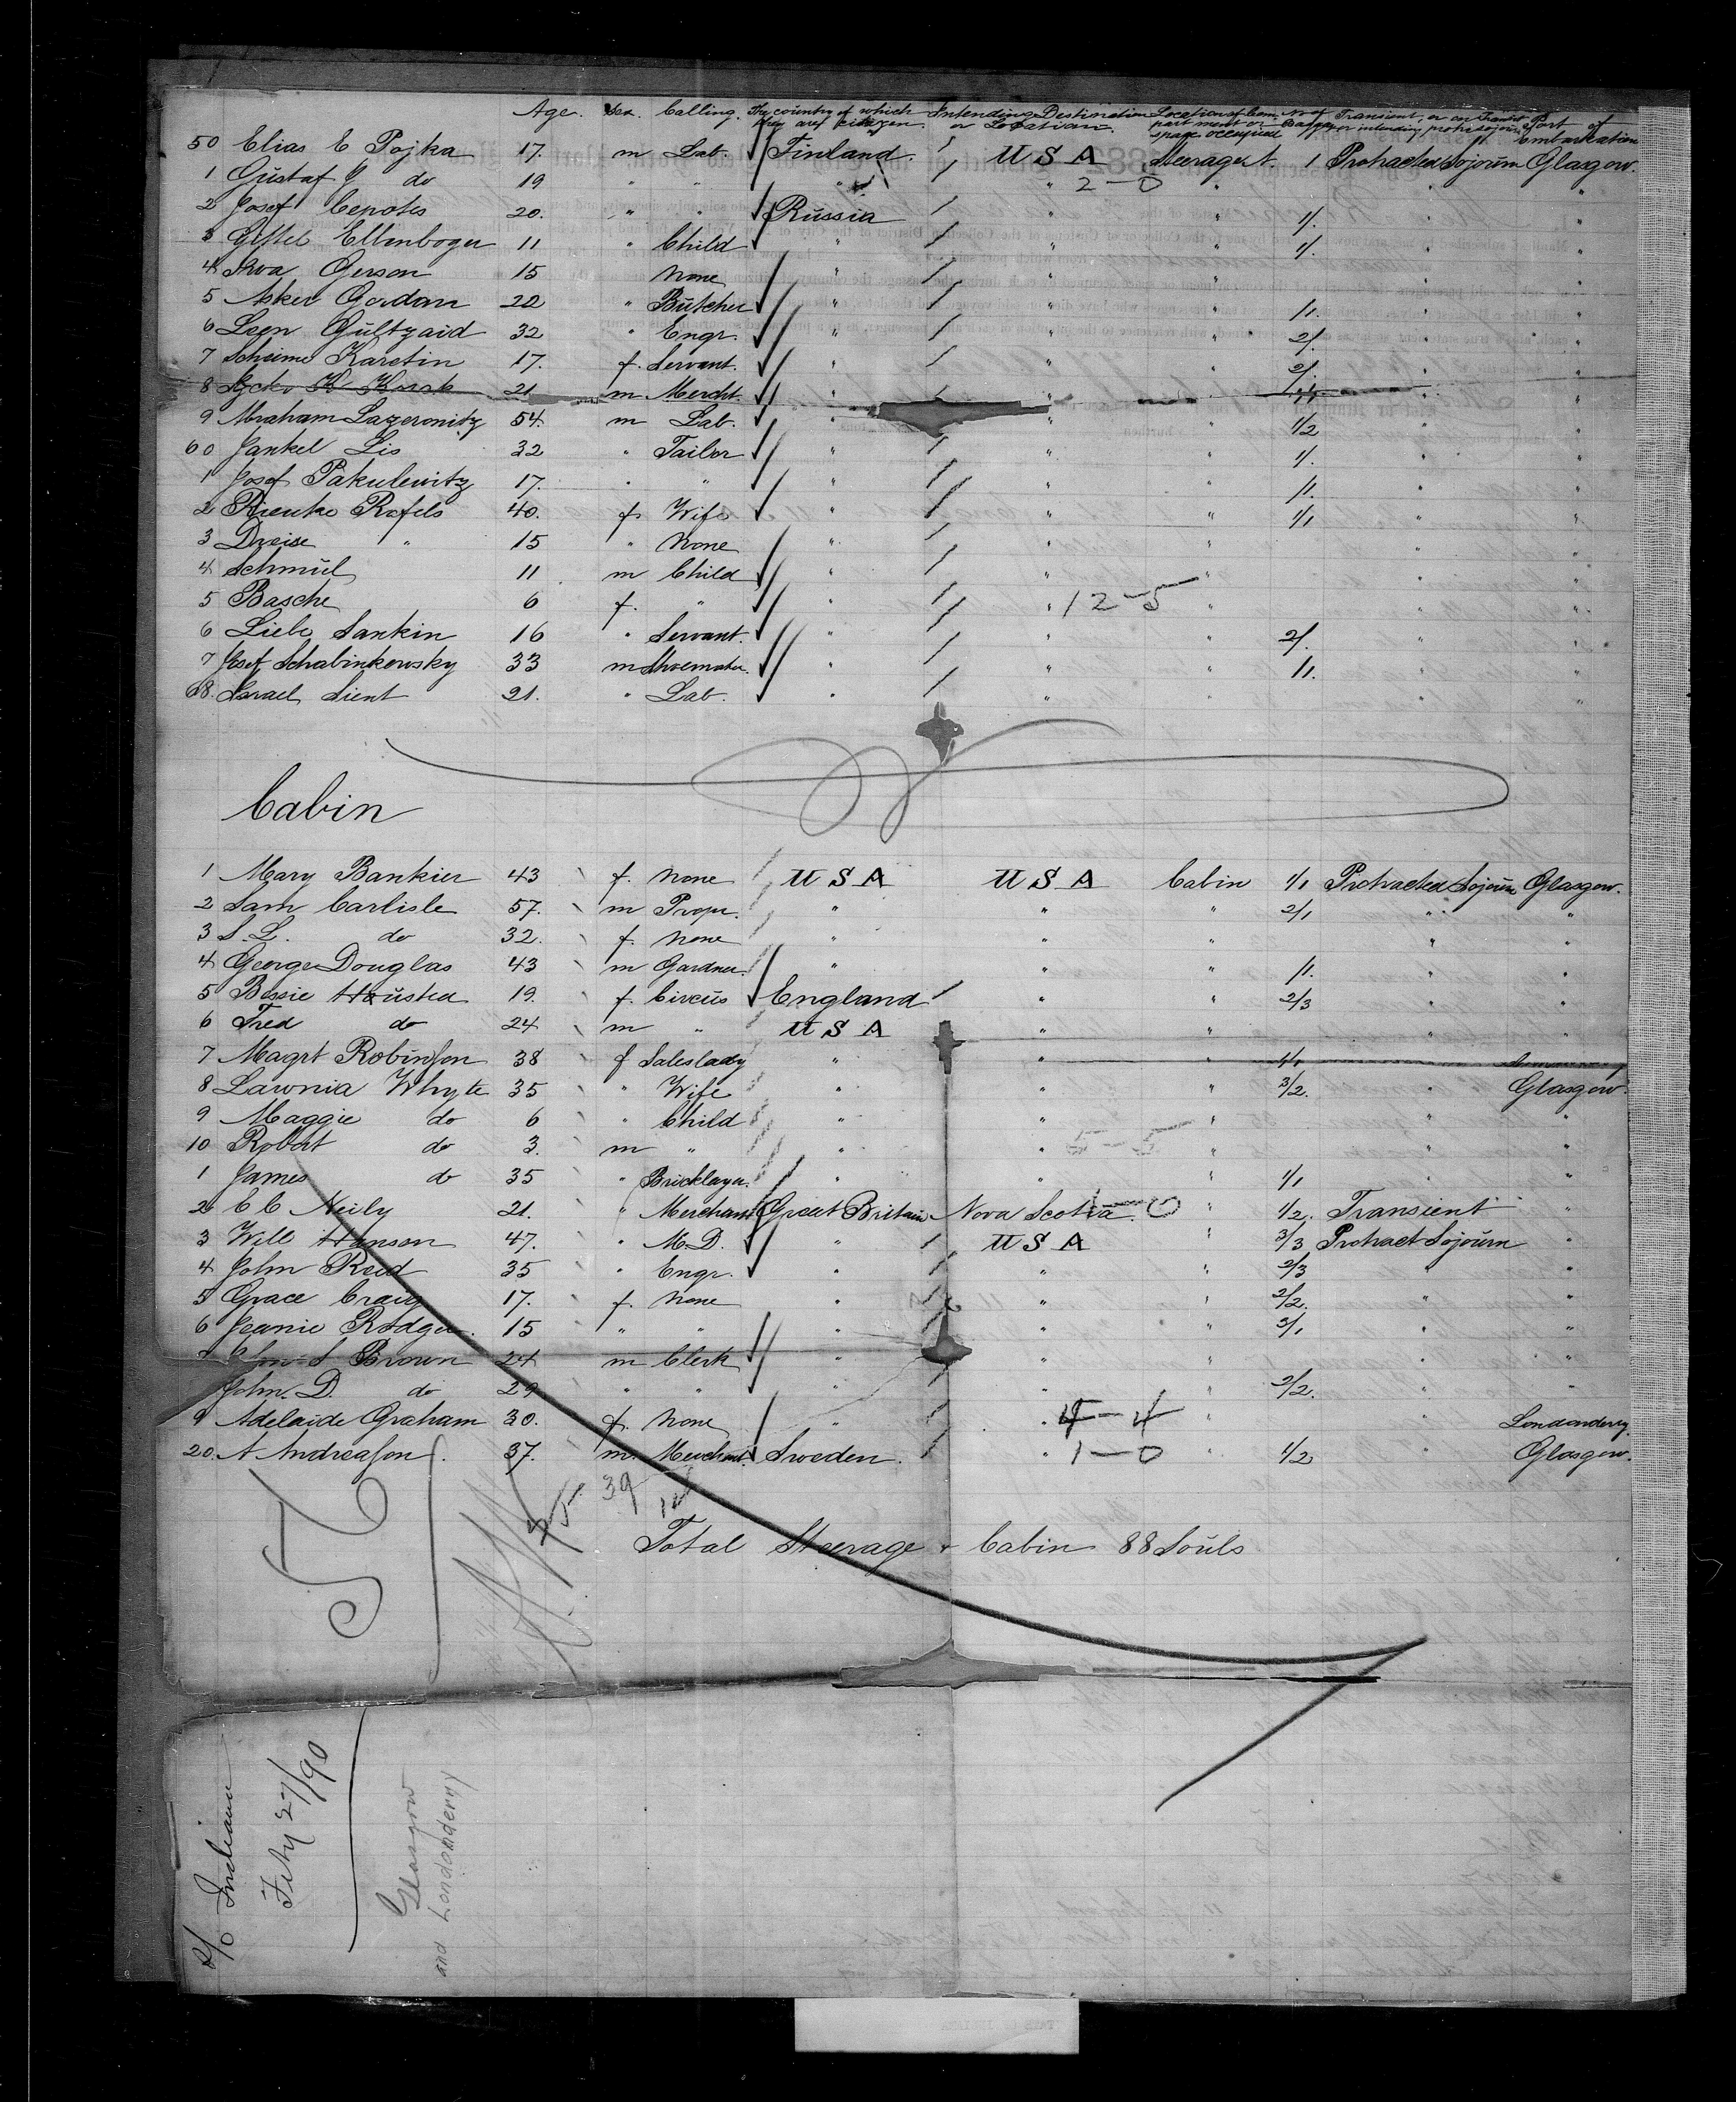 Age. Sex. Calling. The country of which they are citizen Intending Destination or Location. Location of Compartment or space occupied No of Baggage Transient, or in transit or intending protracted sojourn Port of Embarkation
50 Elias E Pojka 17. m Lab. Finland. U S A Steerage 1 Protracted Sojourn Glasgow.
1 Gustaf J do 19 " " " " 2-0 " " "
2 Josef 20. " " Russia " " 1/. " "
3 Ellenbogen 11 " Child " " " 1/. " "
4 Gerson 15 None " " " " "
5 Asker Gordan 22 " Butcher " " " 1/1. " "
6 32 " Engr. " " " 2/. " "
7 Scheime Karetin 17. f. Servant. " " " 2/. " "
8 21 m Mercht. " " " " "
9 Abraham Lazerowitz 54. m Lab. " " " 1/2 " "
60 Jankel Lis 32 " Tailor " " " 1/. " "
1 Josef Pakulewitz 17. " " " " " 1/1. " "
2 Rafels 40. f Wife " " " 1/1 " "
3 Dreise " 15 " None " " " " "
4 Schmul 11 m Child " " " " "
5 Basche 6 f. " " " 12-5 " " "
6 Liebe Sankin 16 " Servant. " " " 2/. " "
7 Josef Schabinkowsky 33 m Shoemaker. " " " 1/1. " "
68. Israel Sient 21. " Lab. " " " " "
Cabin
1 Mary Bankier 43 f. None U S A U S A Cabin 1/1 Protracted Sojourn Glasgow.
2 Sam Carlisle 57. m Propr. " " " 2/1 " "
3 S. L. do 32. f. None " " " " "
4 George Douglas 43 m Gardner. " " " 1/1. " "
5 Bessie Husted 19. f. Circus England " " 2/3 " "
6 Fred do 24 m " U S A " " " "
7 Magrt Robinson 38 f Saleslady " " " 1/1
8 Lavinia Whyte 35 " Wife " " " 3/2. " Glasgow.
9 Maggie do 6 " Child " " " " "
10 Robert do 3. m " " " 5-5 " " "
1 James do 35 " Bricklayer. " " " 1/1 " "
2 C C Neily 21. " Merchant Great Britain Nova Scotia. 1-0 " 1/2. Transient "
3 Will Hanson 47. " M.D. " U S A " 3/3 Protract Sojourn "
4 John Reid 35 " Engr. " " " 2/3 " "
5 Grace Craig 17. f. None " " " 2/2. " "
6 Jeanie Rodger. 15 " " " " " 3/1 " "
S Brown 24 m Clerk " " " " "
John. D. do 29 " " " " " 2/2. " "
9 Adelaide Graham 30. f. None " " 4-4 " " Londonderry
20. A Andreason. 37. m. Merchant. Sweden. " 1-0 " 1/2 Glasgow.
75 39
Total Steerage + Cabin 88 Souls
S/S Indiana
Feby 27/90
Glasgow
and Londonderry